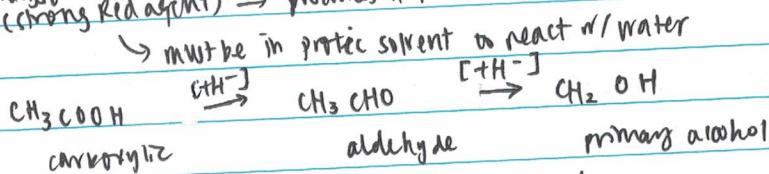 (strong Red agent) →
↳ must be in protic solvent to react w/ water
CH3COOH [+H⁻] → CH3 CHO [+H⁻] → CH2 OH
carboxylic aldehyde primary alcohol